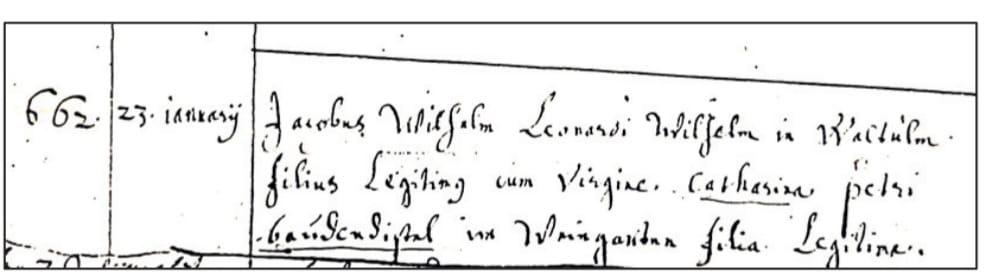 662. 23. ianuarij Jacobus Wilhelm Leonardi Wilhelm in Waltulm.
filius Legitimg cum Virgine. Catharina petri
baudendistel im Weingarten filia Legitima.